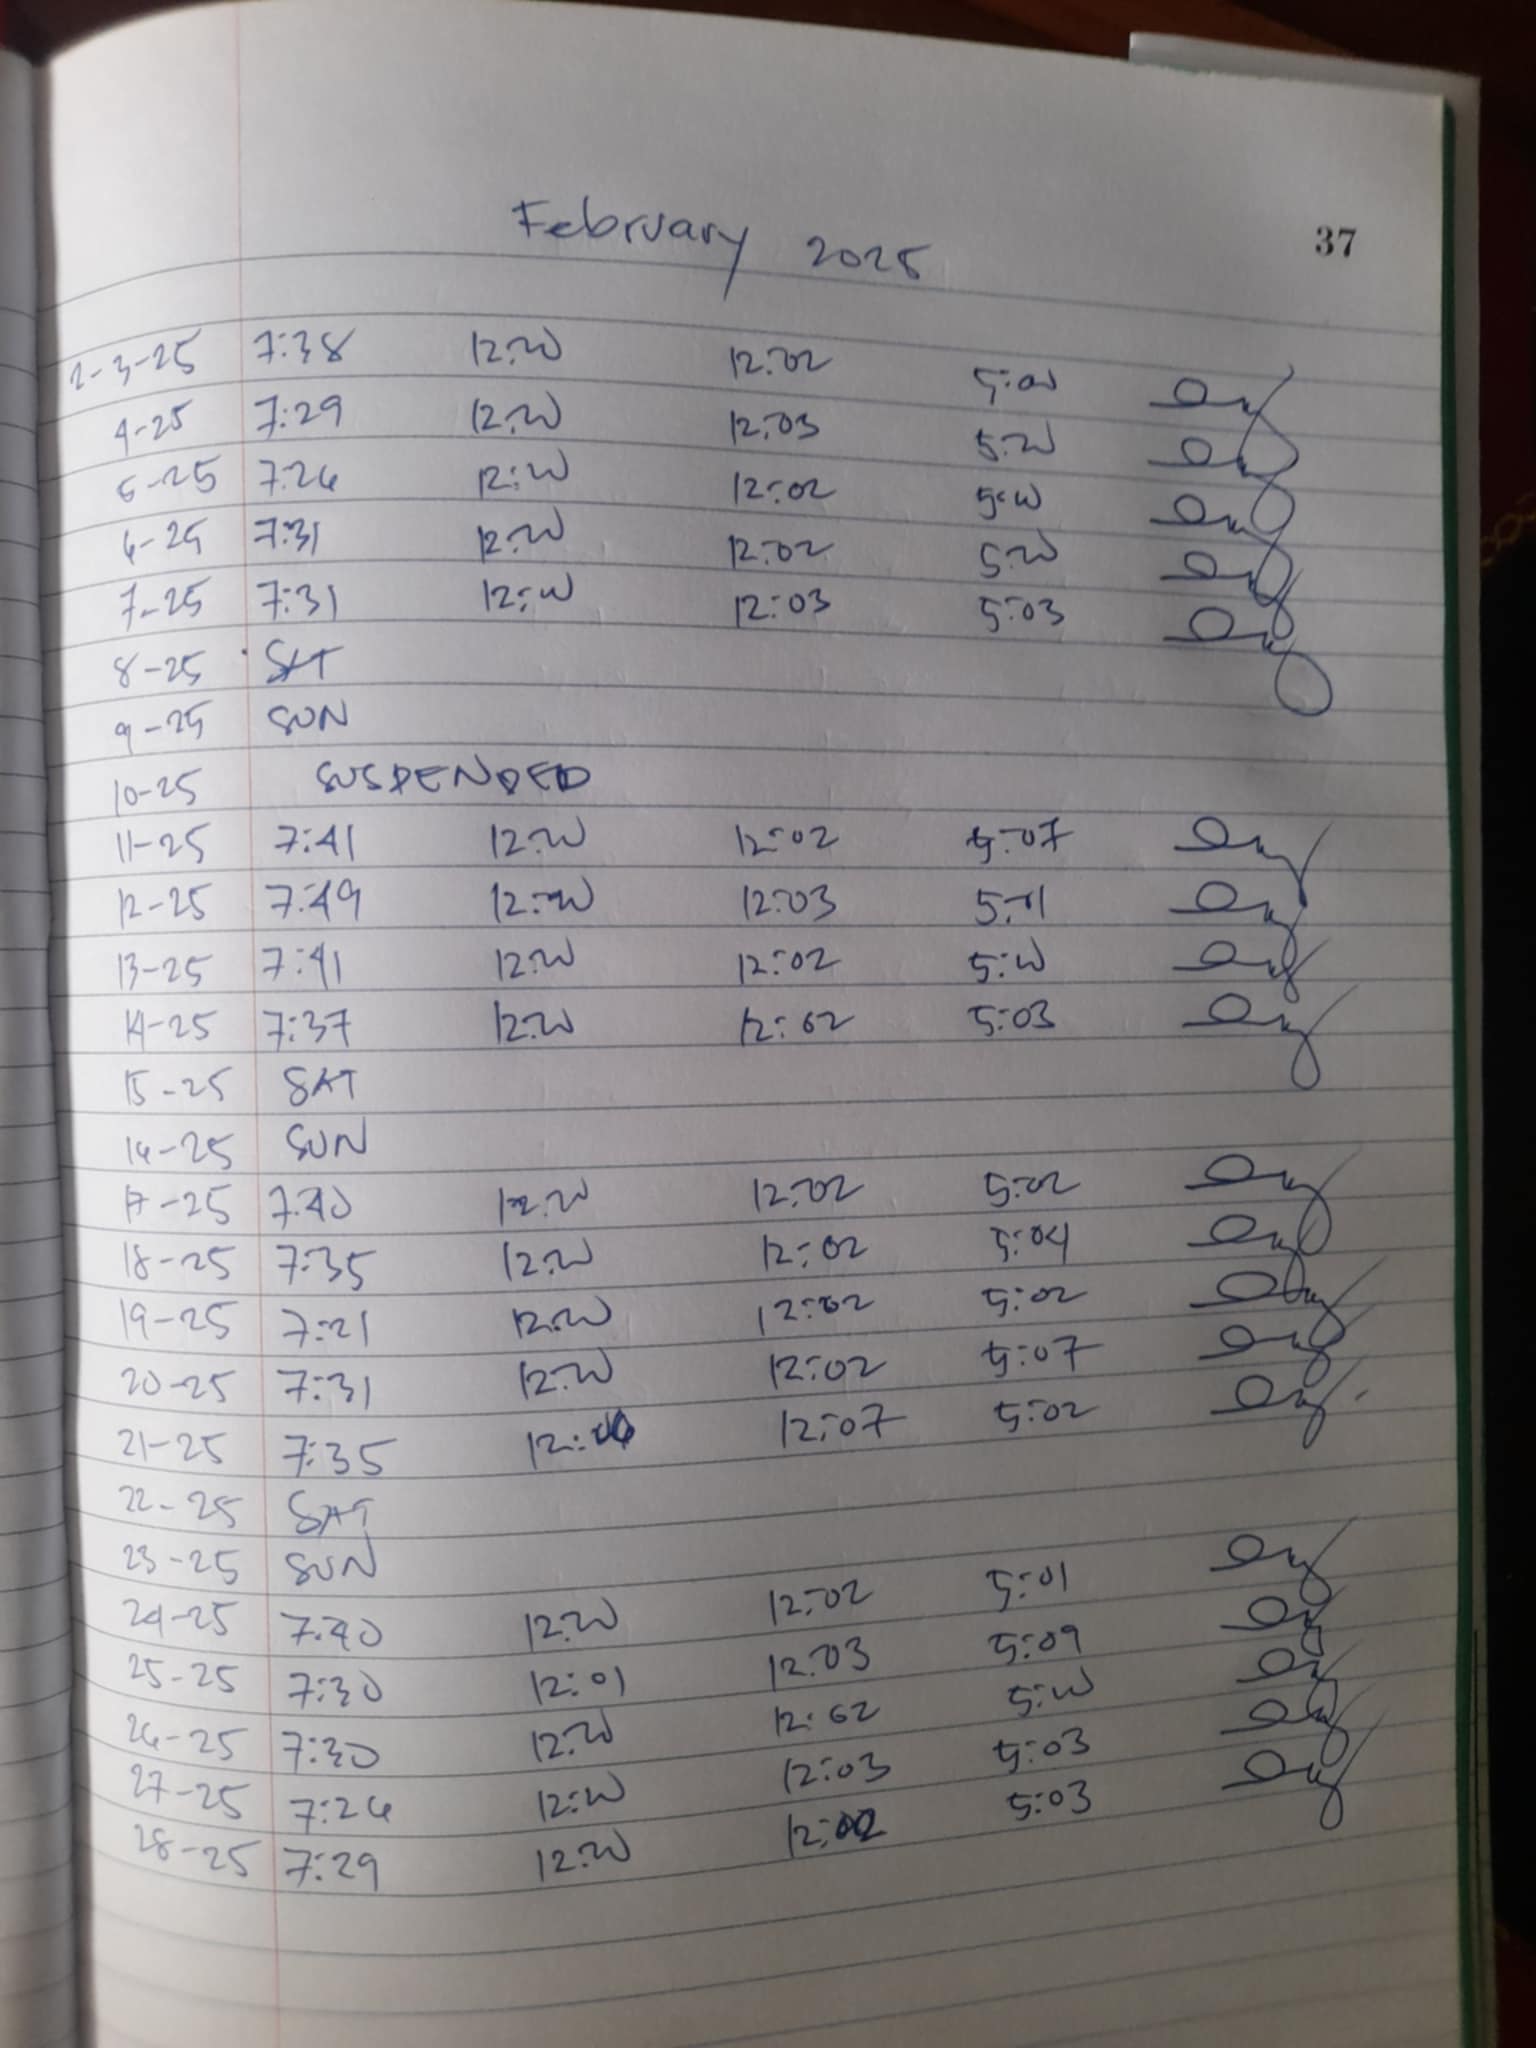 February 2025
37
2-3-25 7:38 12:00 12:02 5:00
4-25 7:29 12:00 12:03 5:00
5-25 7:26 12:00 12:02 5:00
6-25 7:31 12:00 12:02 5:00
7-25 7:31 12:00 12:03 5:03
8-25 SAT
9-25 SUN
10-25 SUSPENDED
11-25 7:41 12:00 12:02 5:07
12-25 7:49 12:00 12:03 5:01
13-25 7:41 12:00 12:02 5:00
14-25 7:37 12:00 12:02 5:03
15-25 SAT
16-25 SUN
17-25 7:40 12:00 12:02 5:02
18-25 7:35 12:00 12:02 5:04
19-25 7:21 12:00 12:02 5:02
20-25 7:31 12:00 12:02 5:07
21-25 7:35 12:07 5:02
22-25 SAT
23-25 SUN
24-25 7:40 12:00 12:02 5:01
25-25 7:30 12:01 12:03 5:09
26-25 7:30 12:00 12:02 5:00
27-25 7:26 12:00 12:03 5:03
28-25 7:29 12:00 12:02 5:03